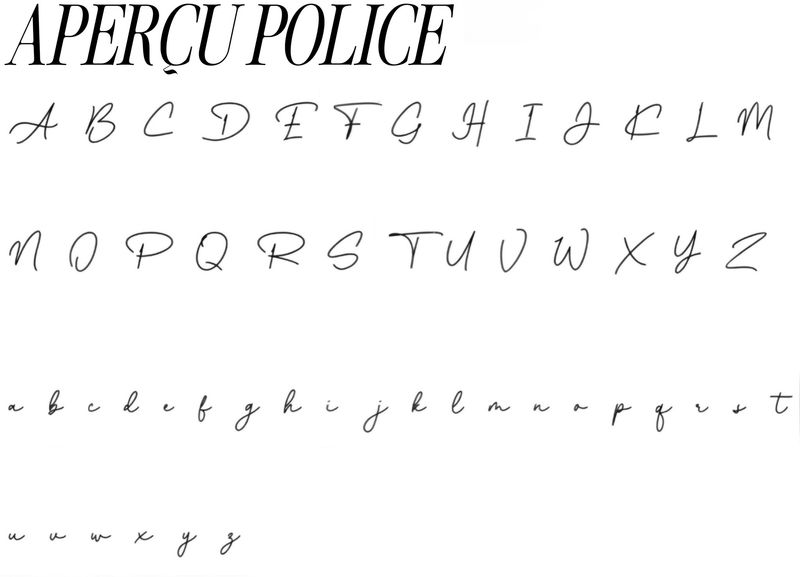 APERÇU POLICE
A B C D E F G H I J K L M
N O P Q R S T U V W X Y Z
a b c d e f g h i j k l m n o p q r s t
u v w x y z